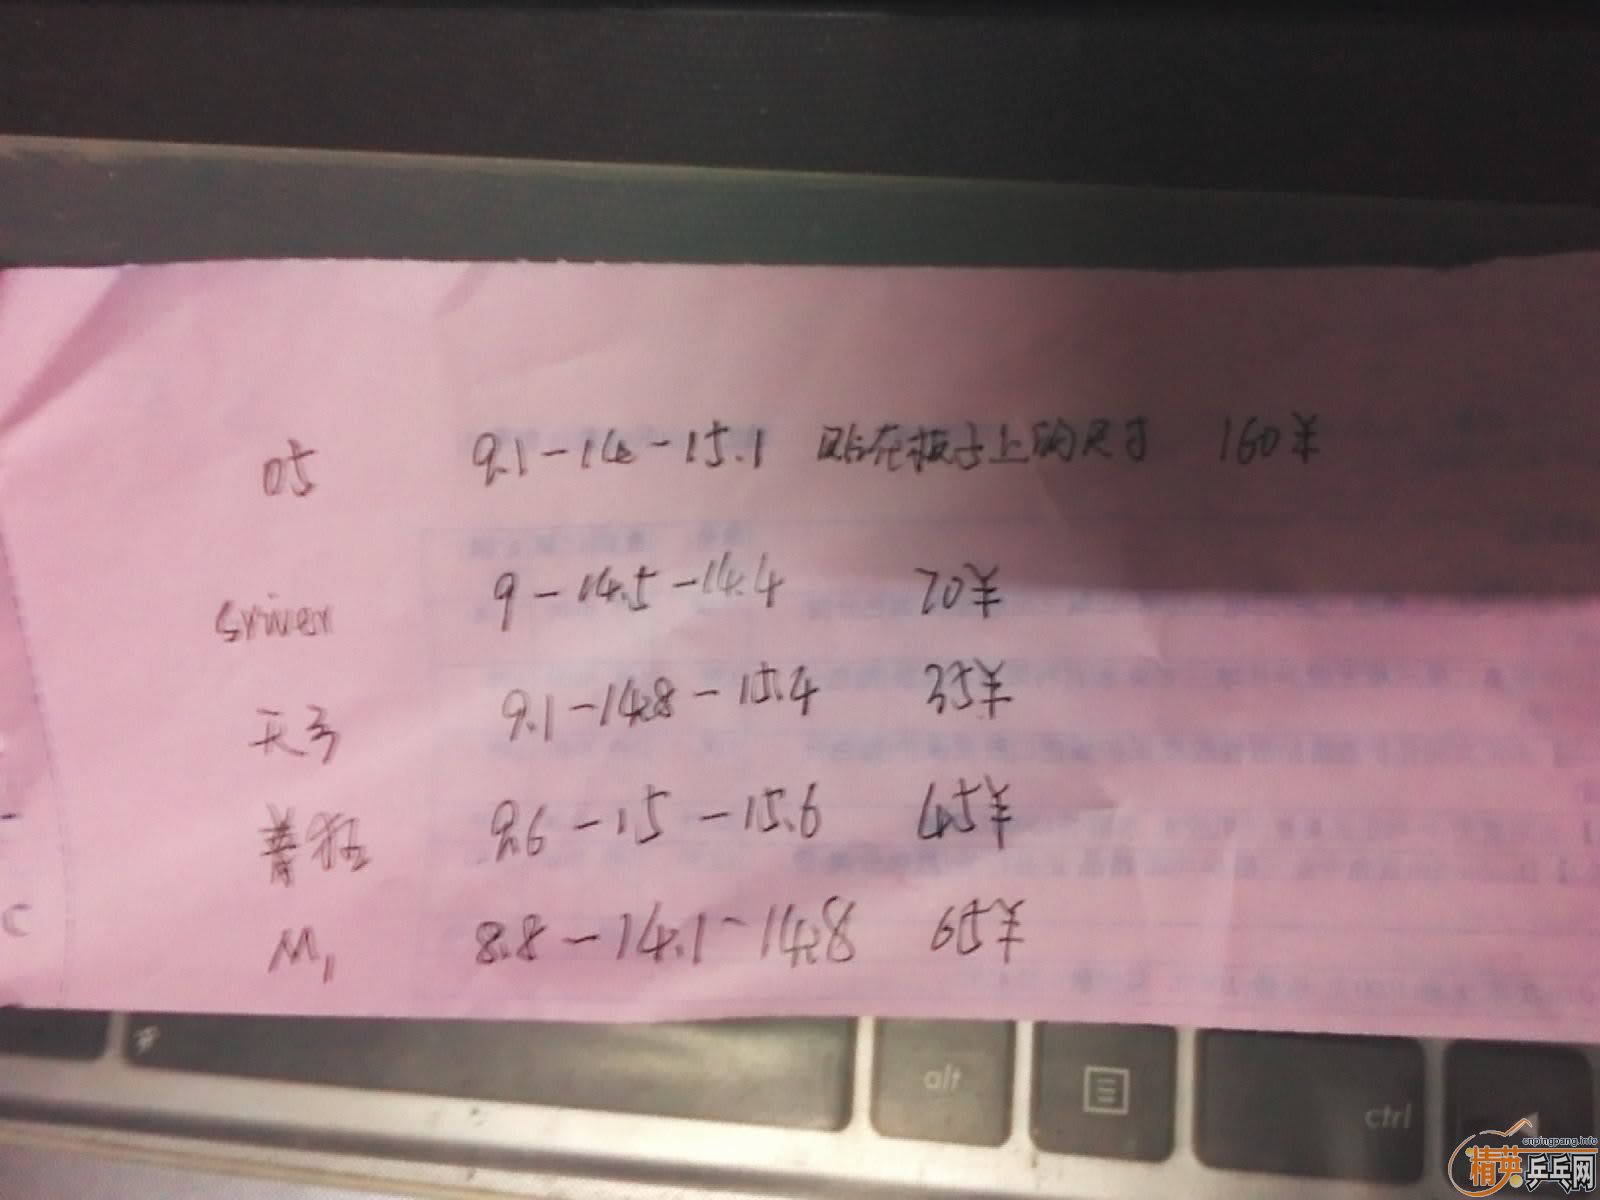 05 9.1-14-15.1 贴在板子上的尺寸 160¥
sriver 9-14.5-14.4 70¥
天弓 9.1-14.8-15.4 35¥
普狂 9.6-15-15.6 45¥
M1 8.8-14.1-14.8 65¥
C
alt
ctrl
cnpingpang.info
精英乒乓网